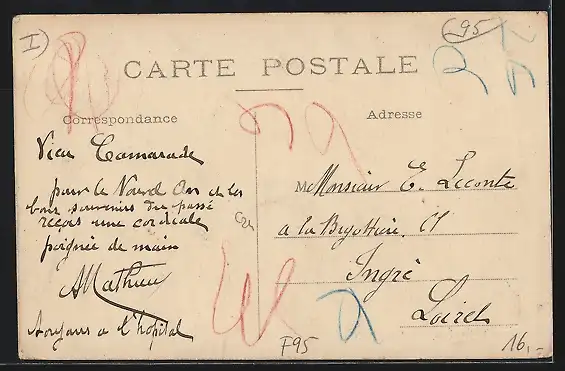 I
95
CARTE POSTALE
Correspondance
Adresse
Vieu Camarade
pour le Nouvel An et les
bons souvenirs du passé
reçois une cordiale
poignée de main
AMathieu
a l'hopital
M Monsieur E. Leconte
a la
Ingré
Loiret
F95
16.-